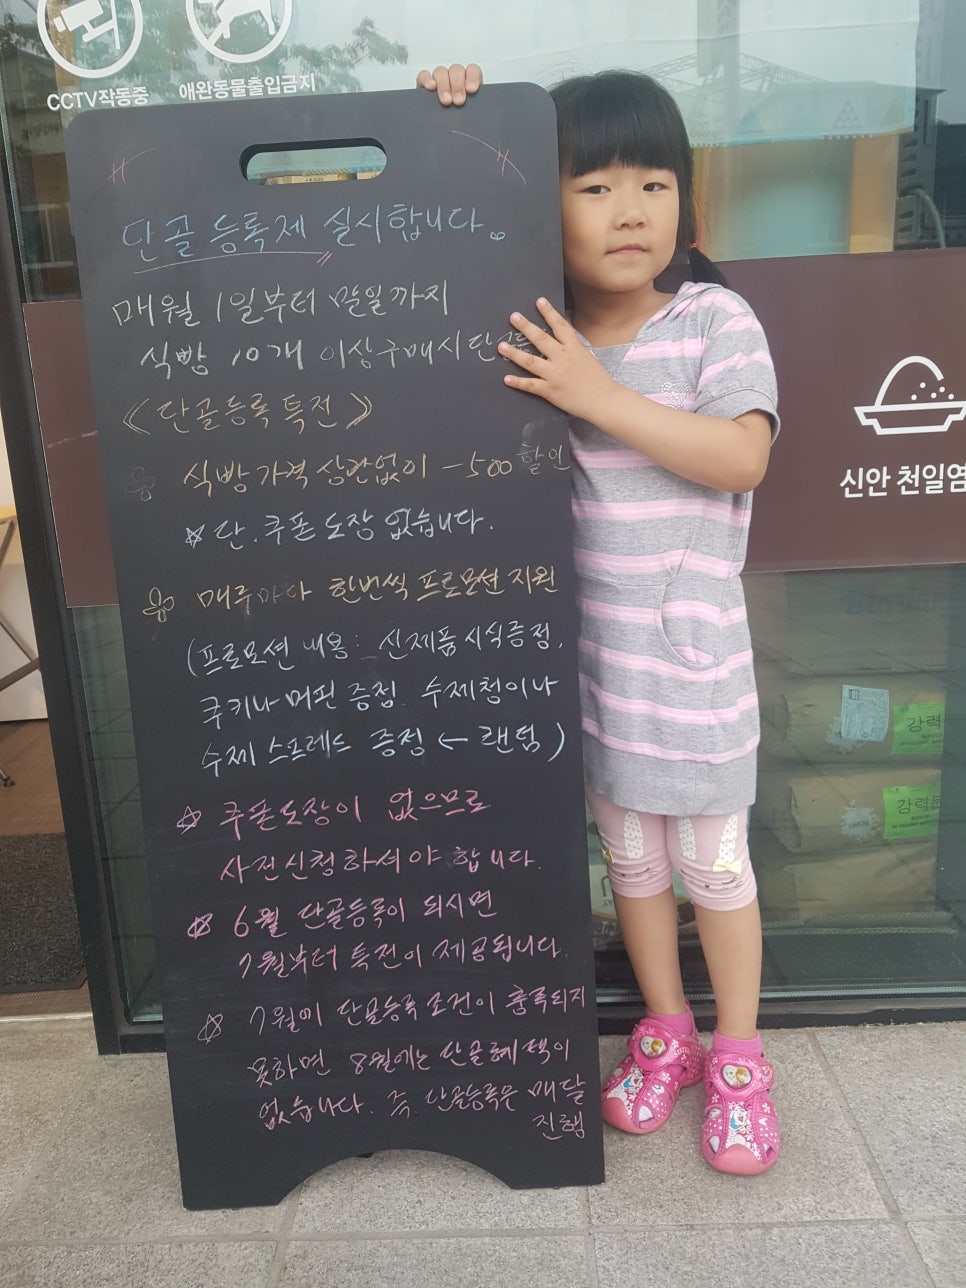 CCTV작동중
애완동물출입금지
단골 등록제 실시합니다.
매월 1일부터 말일까지
식빵 10개 이상구매시 단
《단골등록 특전》
식빵가격 상관없이 -500 할인
☆단. 쿠폰 도장 없습니다.
매주마다 한번씩 프로모션 지원
(프로모션 내용: 신제품 시식증정,
쿠키나 머핀 증정. 수제청이나
수제 스프레드 증정 ← 랜덤)
☆ 쿠폰도장이 없으므로
사전신청하셔야 합니다.
☆ 6월 단골등록이 되시면
7월부터 특전이 제공됩니다.
☆ 7월에 단골등록 조건이 충족되지
못하면 8월에는 단골혜택이
없습니다. 즉, 단골등록은 매달
진행
신안 천일염
강력
강력분